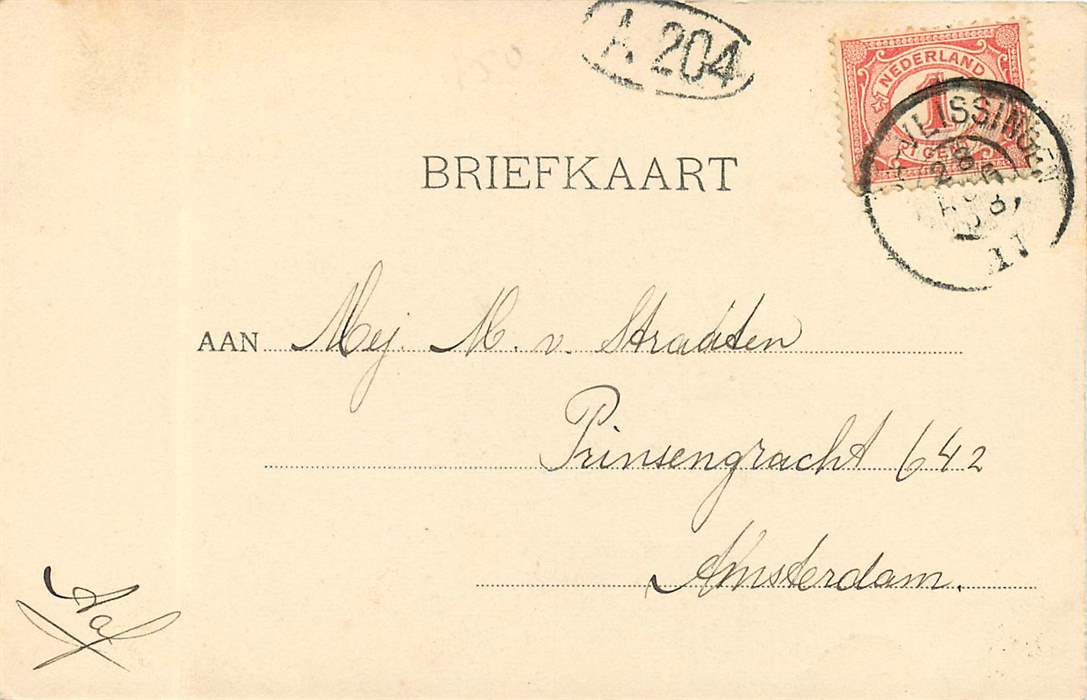 A 204
NEDERLAND
1
VLISSINGEN
28
BRIEFKAART
AAN Mej. M. v. Stradten
Prinsengracht 642
Amsterdam.
Aal